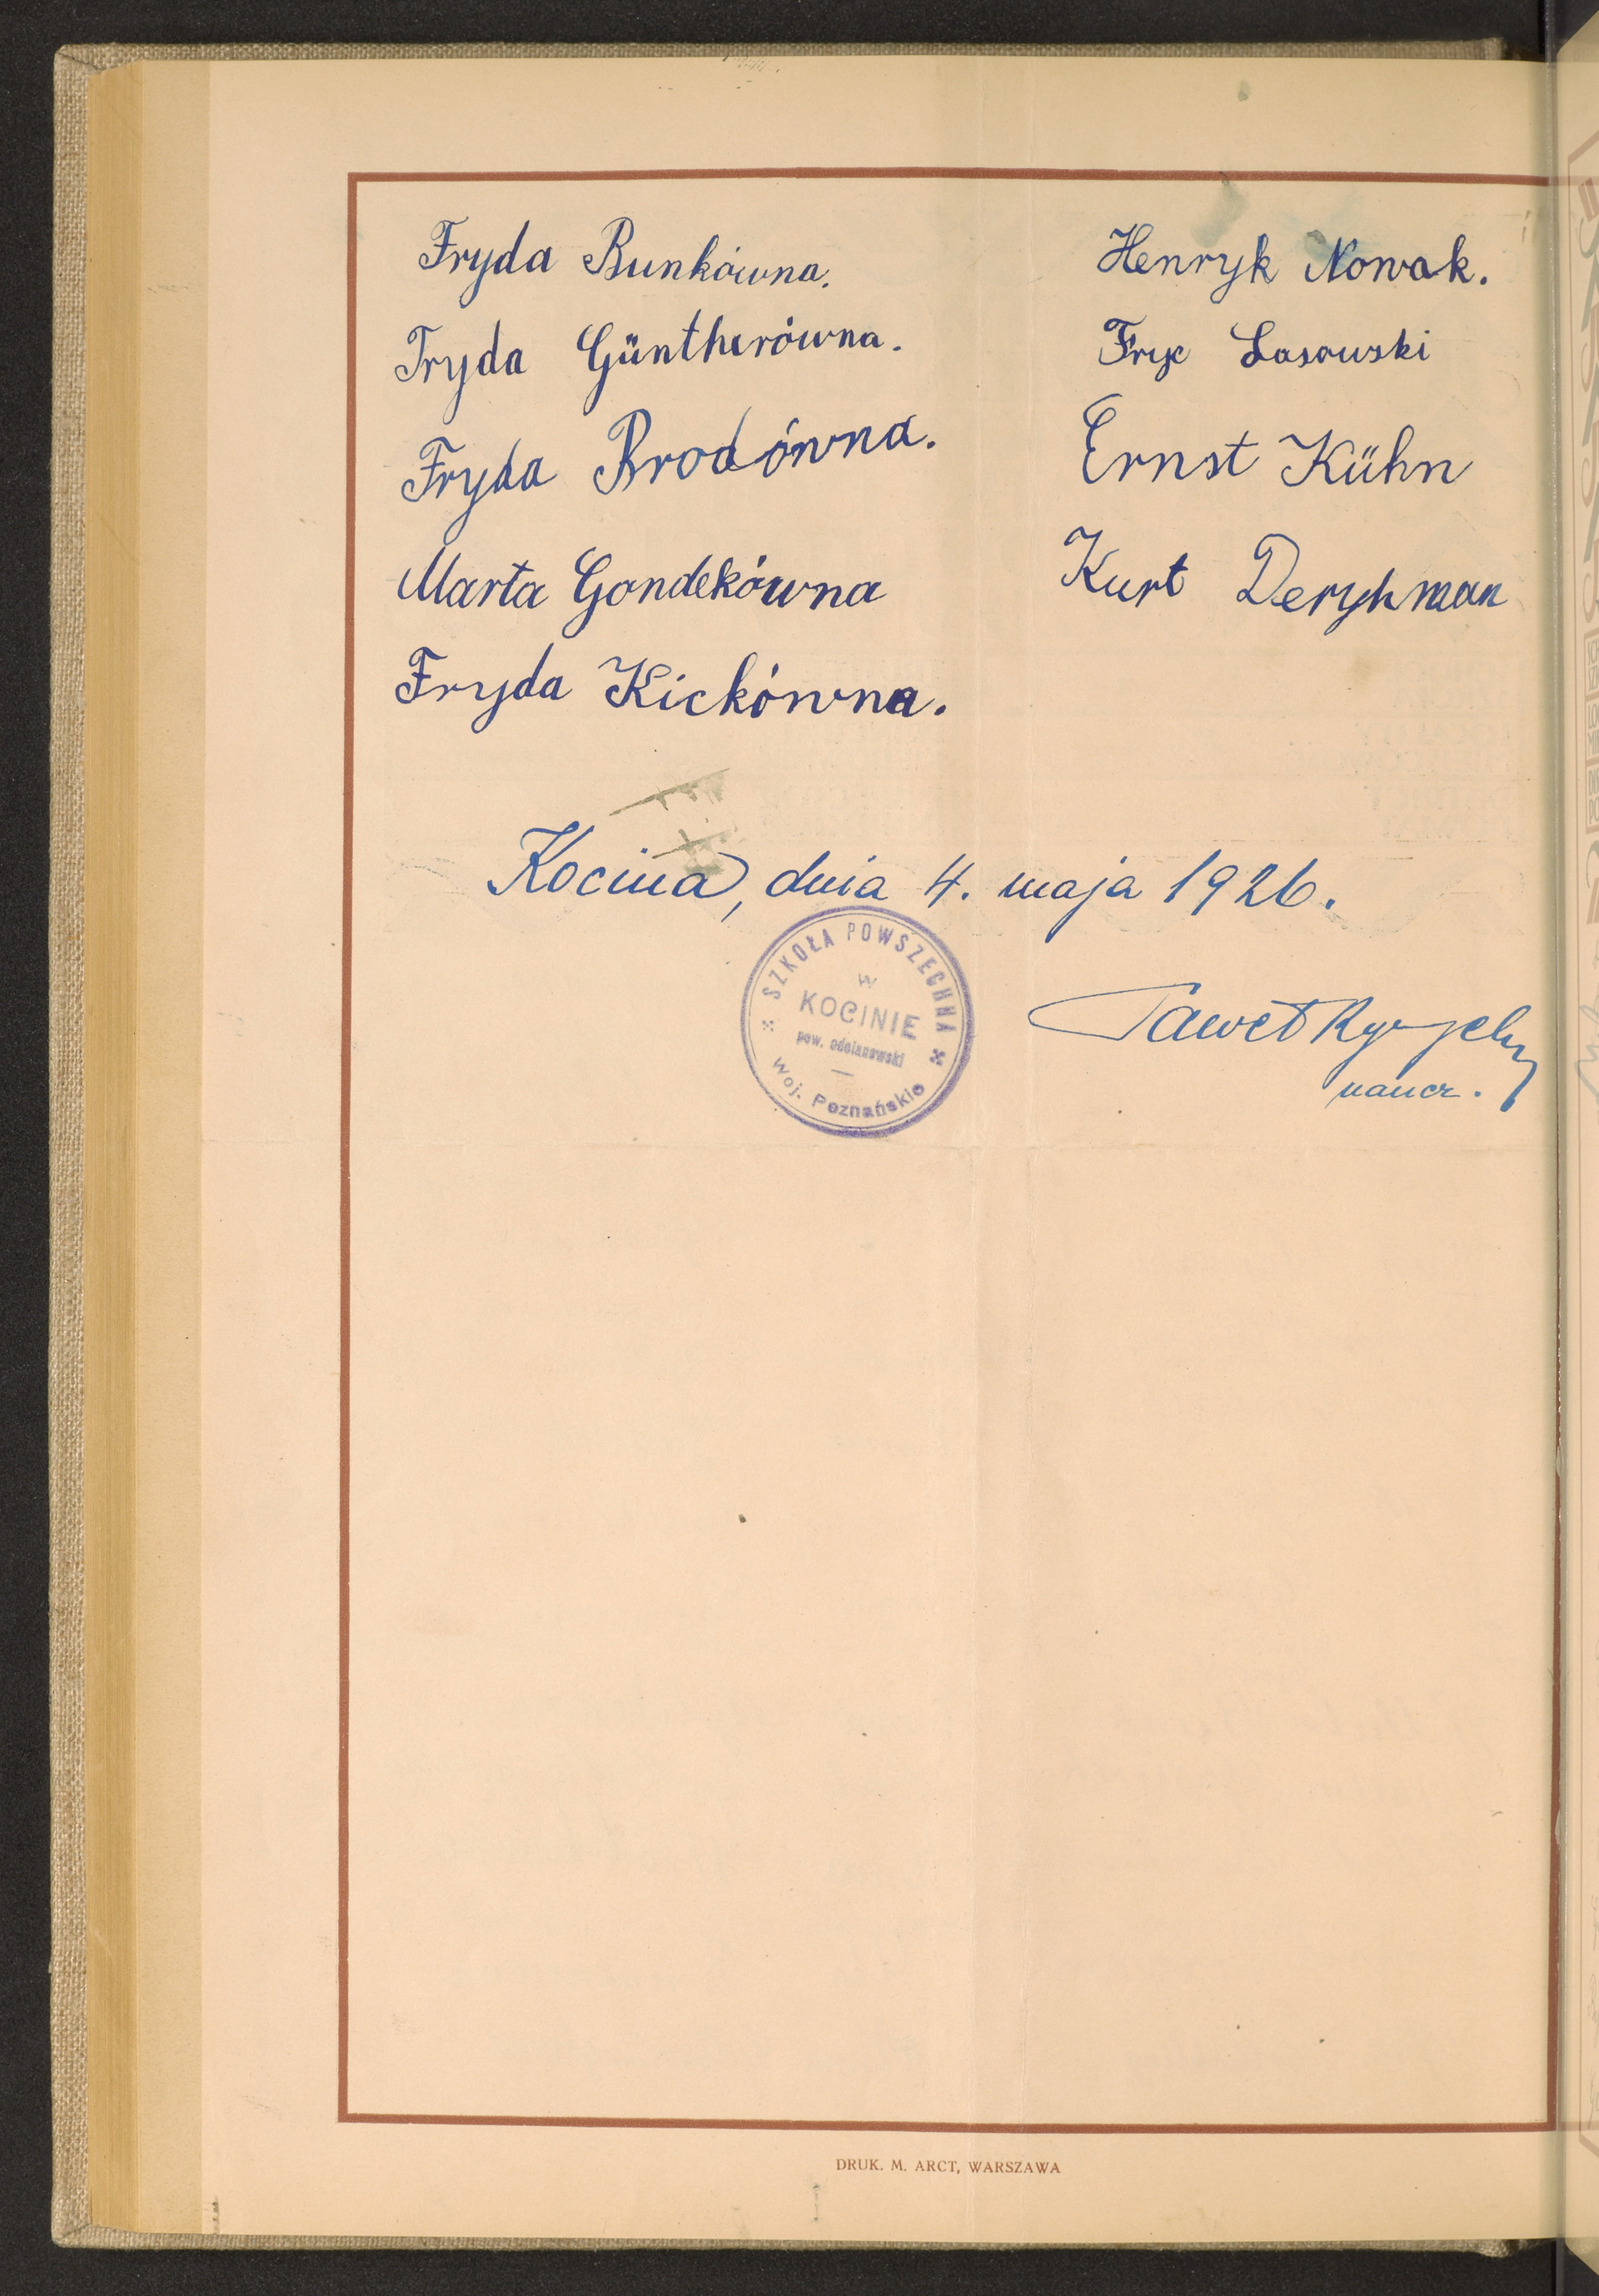 Fryda Bunkówna.
Fryda Güntherówna.
Fryda Brodówna.
Marta Gondekówna
Fryda Kickówna.
Henryk Nowak.
Fryc Lasowski
Ernst Kühn
Kurt Derychman
Kocina, dnia 4. maja 1926.
SZKOŁA POWSZECHNA
w
KOCINIE
pow. odolanowski
Woj. Poznańskie
Paweł
naucz.
DRUK. M. ARCT, WARSZAWA